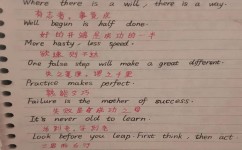 Where there is a will, there is a way.
有志者,事竟成
Well begun is half done.
好的开端是成功的一半
More hasty, less speed.
欲速则不达
One false step will make a great different.
失之毫厘,谬之千里
Practice makes perfect.
熟能生巧
Failure is the mother of success.
失败是成功之母
It's never old to learn.
活到老,学到老
Look before you leap. First think, then act